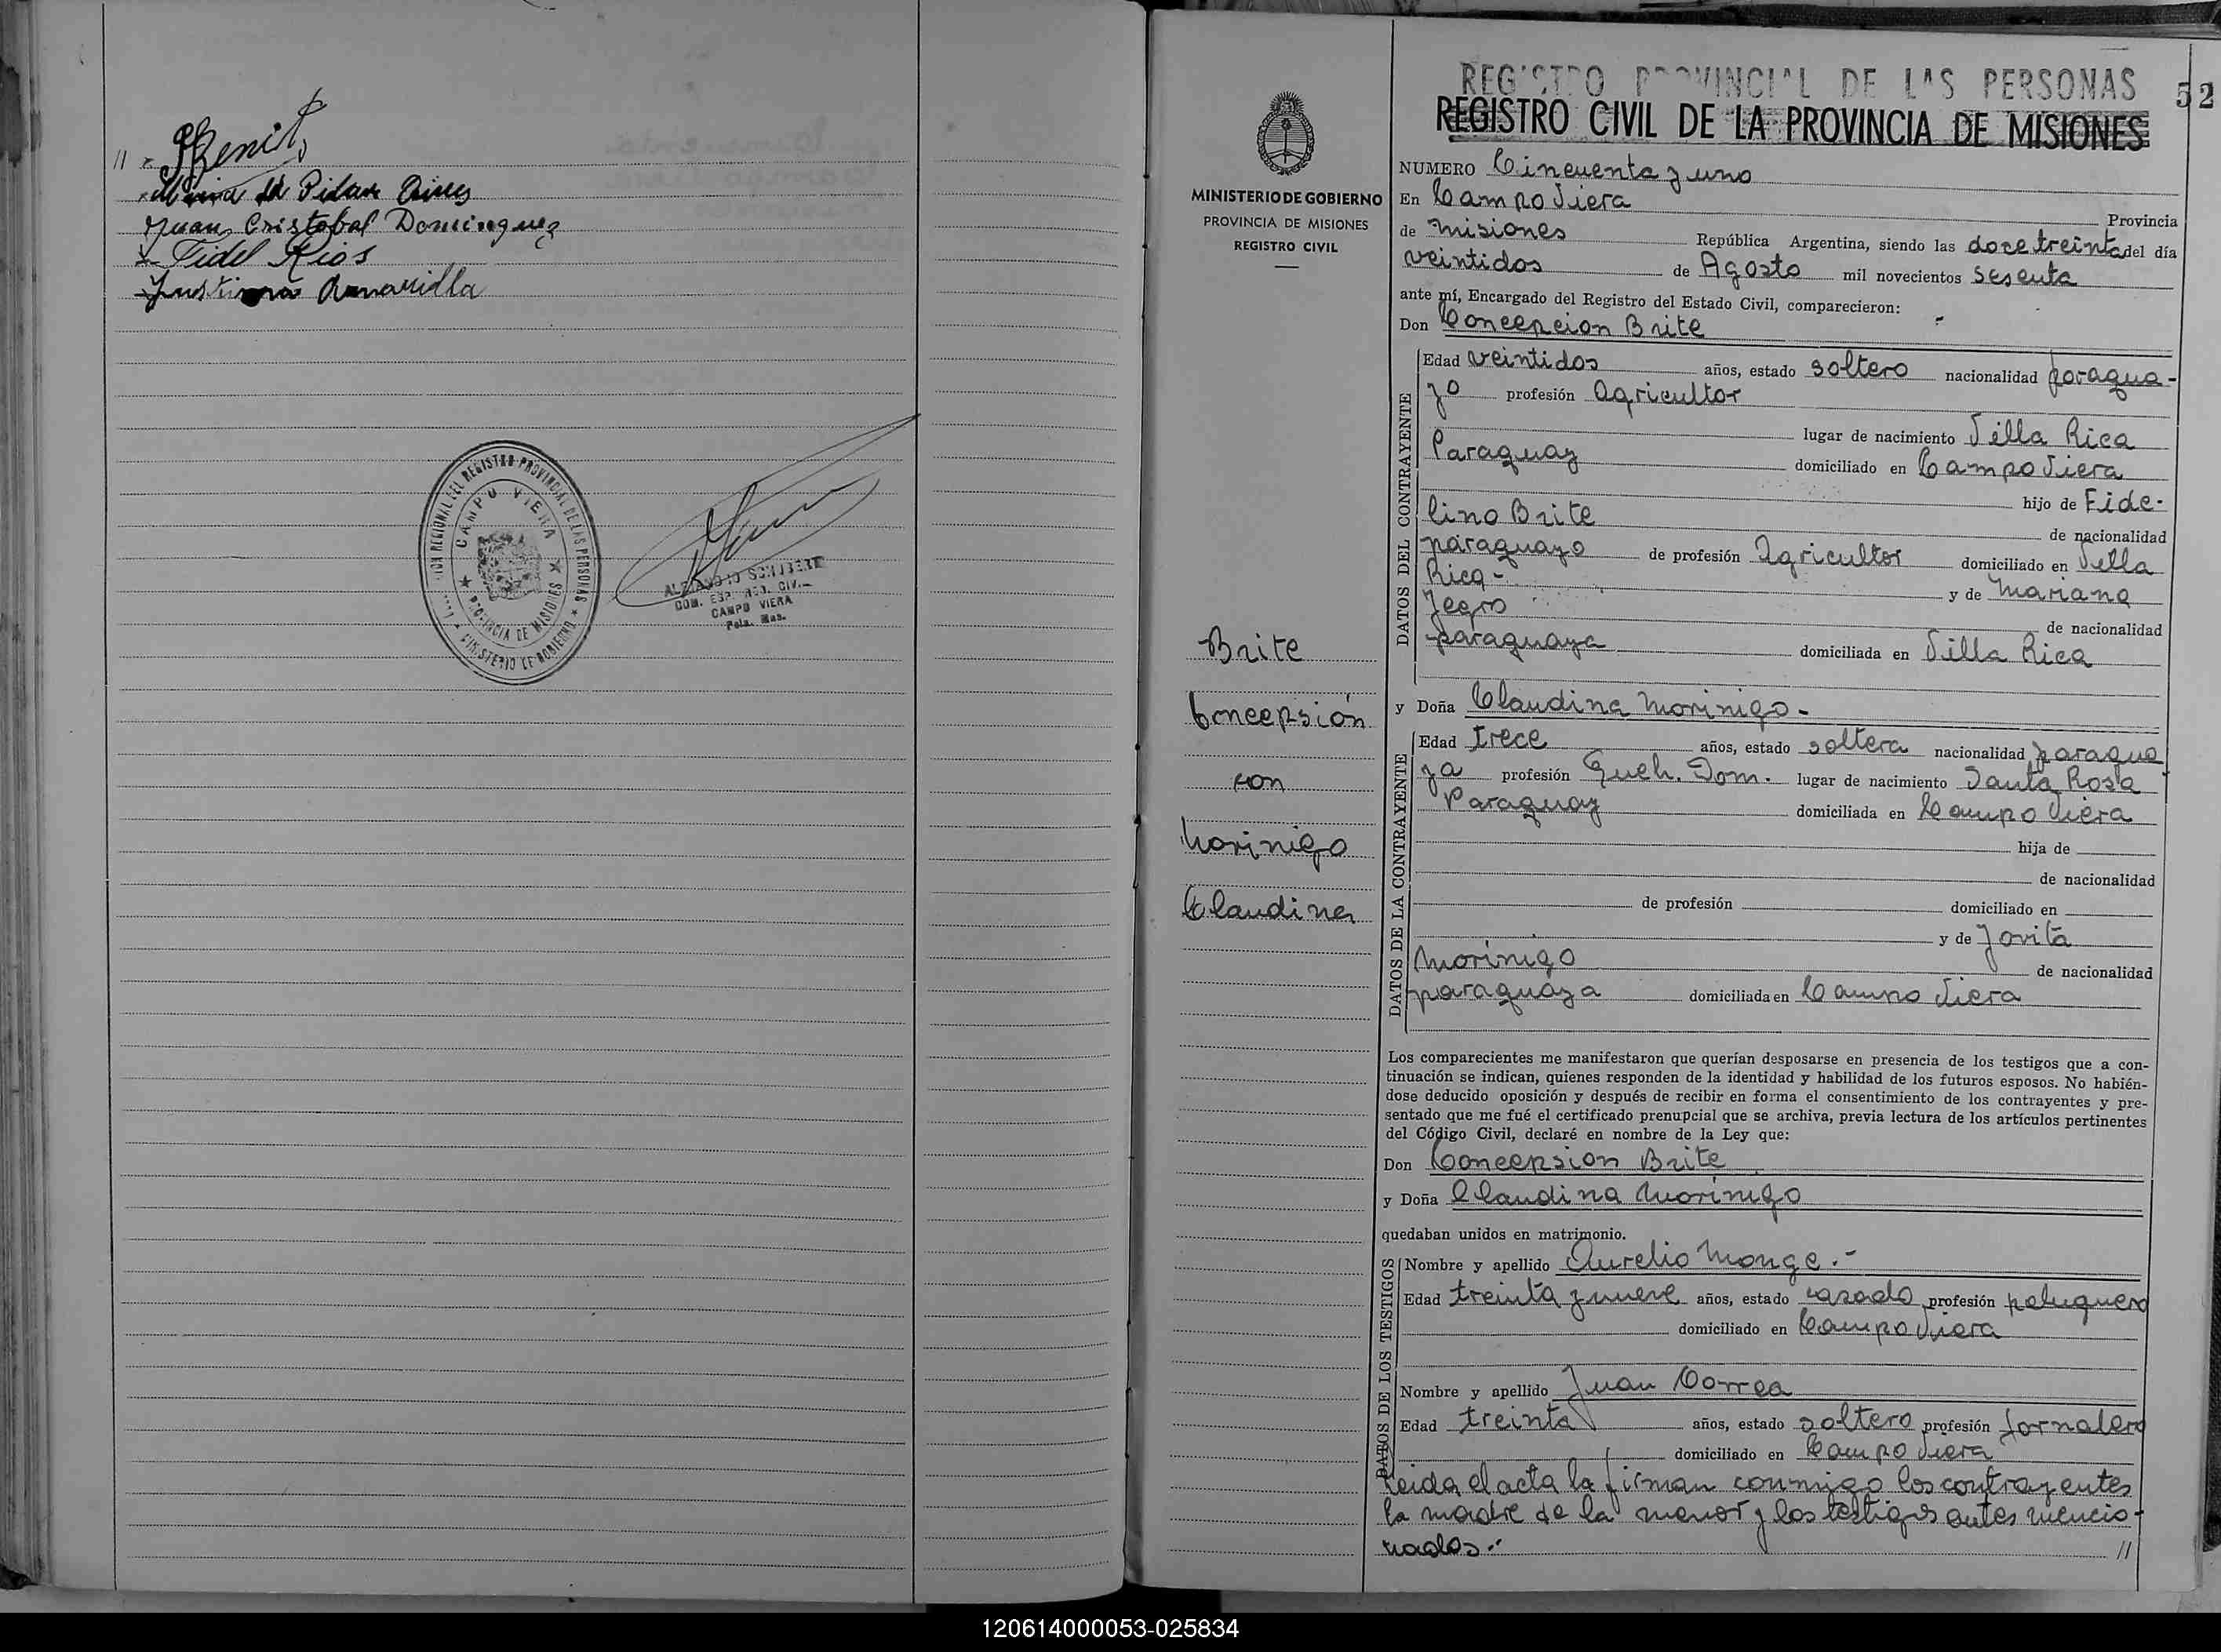 // - 
Maria del Pilar
Juan Cristobal Dominguez
Fidel Rios
Justina Amarilla
REGISTRO PROVINCIAL DE LAS PERSONAS
CAMPO VIERA
PROVINCIA DE MISIONES
MINISTERIO DE GOBIERNO
ALEJANDRO SCHUBERT
CAMPO VIERA
REGISTRO PROVINCIAL DE LAS PERSONAS
52
REGISTRO CIVIL DE LA PROVINCIA DE MISIONES
MINISTERIO DE GOBIERNO
PROVINCIA DE MISIONES
REGISTRO CIVIL
Brite
Concepsión
con
Morinigo
Claudina
NUMERO Cincuenta y uno
En Campo Viera Provincia
de Misiones República Argentina, siendo las doce treinta del día
veintidos de Agosto mil novecientos sesenta
ante mí, Encargado del Registro del Estado Civil, comparecieron:
Don Concepcion Brite
DATOS DEL CONTRAYENTE
Edad veintidos años, estado soltero nacionalidad paragua-
yo profesión Agricultor
lugar de nacimiento Villa Rica
Paraguay domiciliado en Campo Viera
hijo de Fide-
lino Brite de nacionalidad
paraguayo de profesión Agricultor domiciliado en Villa
Rica - y de Mariana
Yegro de nacionalidad
paraguaya domiciliada en Villa Rica
y Doña Claudina Morinigo -
DATOS DE LA CONTRAYENTE
Edad trece años, estado soltera nacionalidad paragua
ya profesión Queh. Dom. lugar de nacimiento Santa Rosa
Paraguay domiciliada en Campo Viera
hija de
de nacionalidad
de profesión domiciliado en
y de Jovita
Morinigo de nacionalidad
paraguaya domiciliada en Campo Viera
Los comparecientes me manifestaron que querían desposarse en presencia de los testigos que a con-
tinuación se indican, quienes responden de la identidad y habilidad de los futuros esposos. No habién-
dose deducido oposición y después de recibir en forma el consentimiento de los contrayentes y pre-
sentado que me fué el certificado prenupcial que se archiva, previa lectura de los artículos pertinentes
del Código Civil, declaré en nombre de la Ley que:
Don Concepsion Brite
y Doña Claudina Morinigo
quedaban unidos en matrimonio.
DATOS DE LOS TESTIGOS
Nombre y apellido Aurelio Monge.-
Edad treinta y nueve años, estado casado profesión peluquero
domiciliado en Campo Viera
Nombre y apellido Juan Correa
Edad treinta años, estado soltero profesión Jornalero
domiciliado en Campo Viera
Leida el acta la firman conmigo los contrayentes
la madre de la menor y los testigos antes mencio-
nados.- //
120614000053-025834